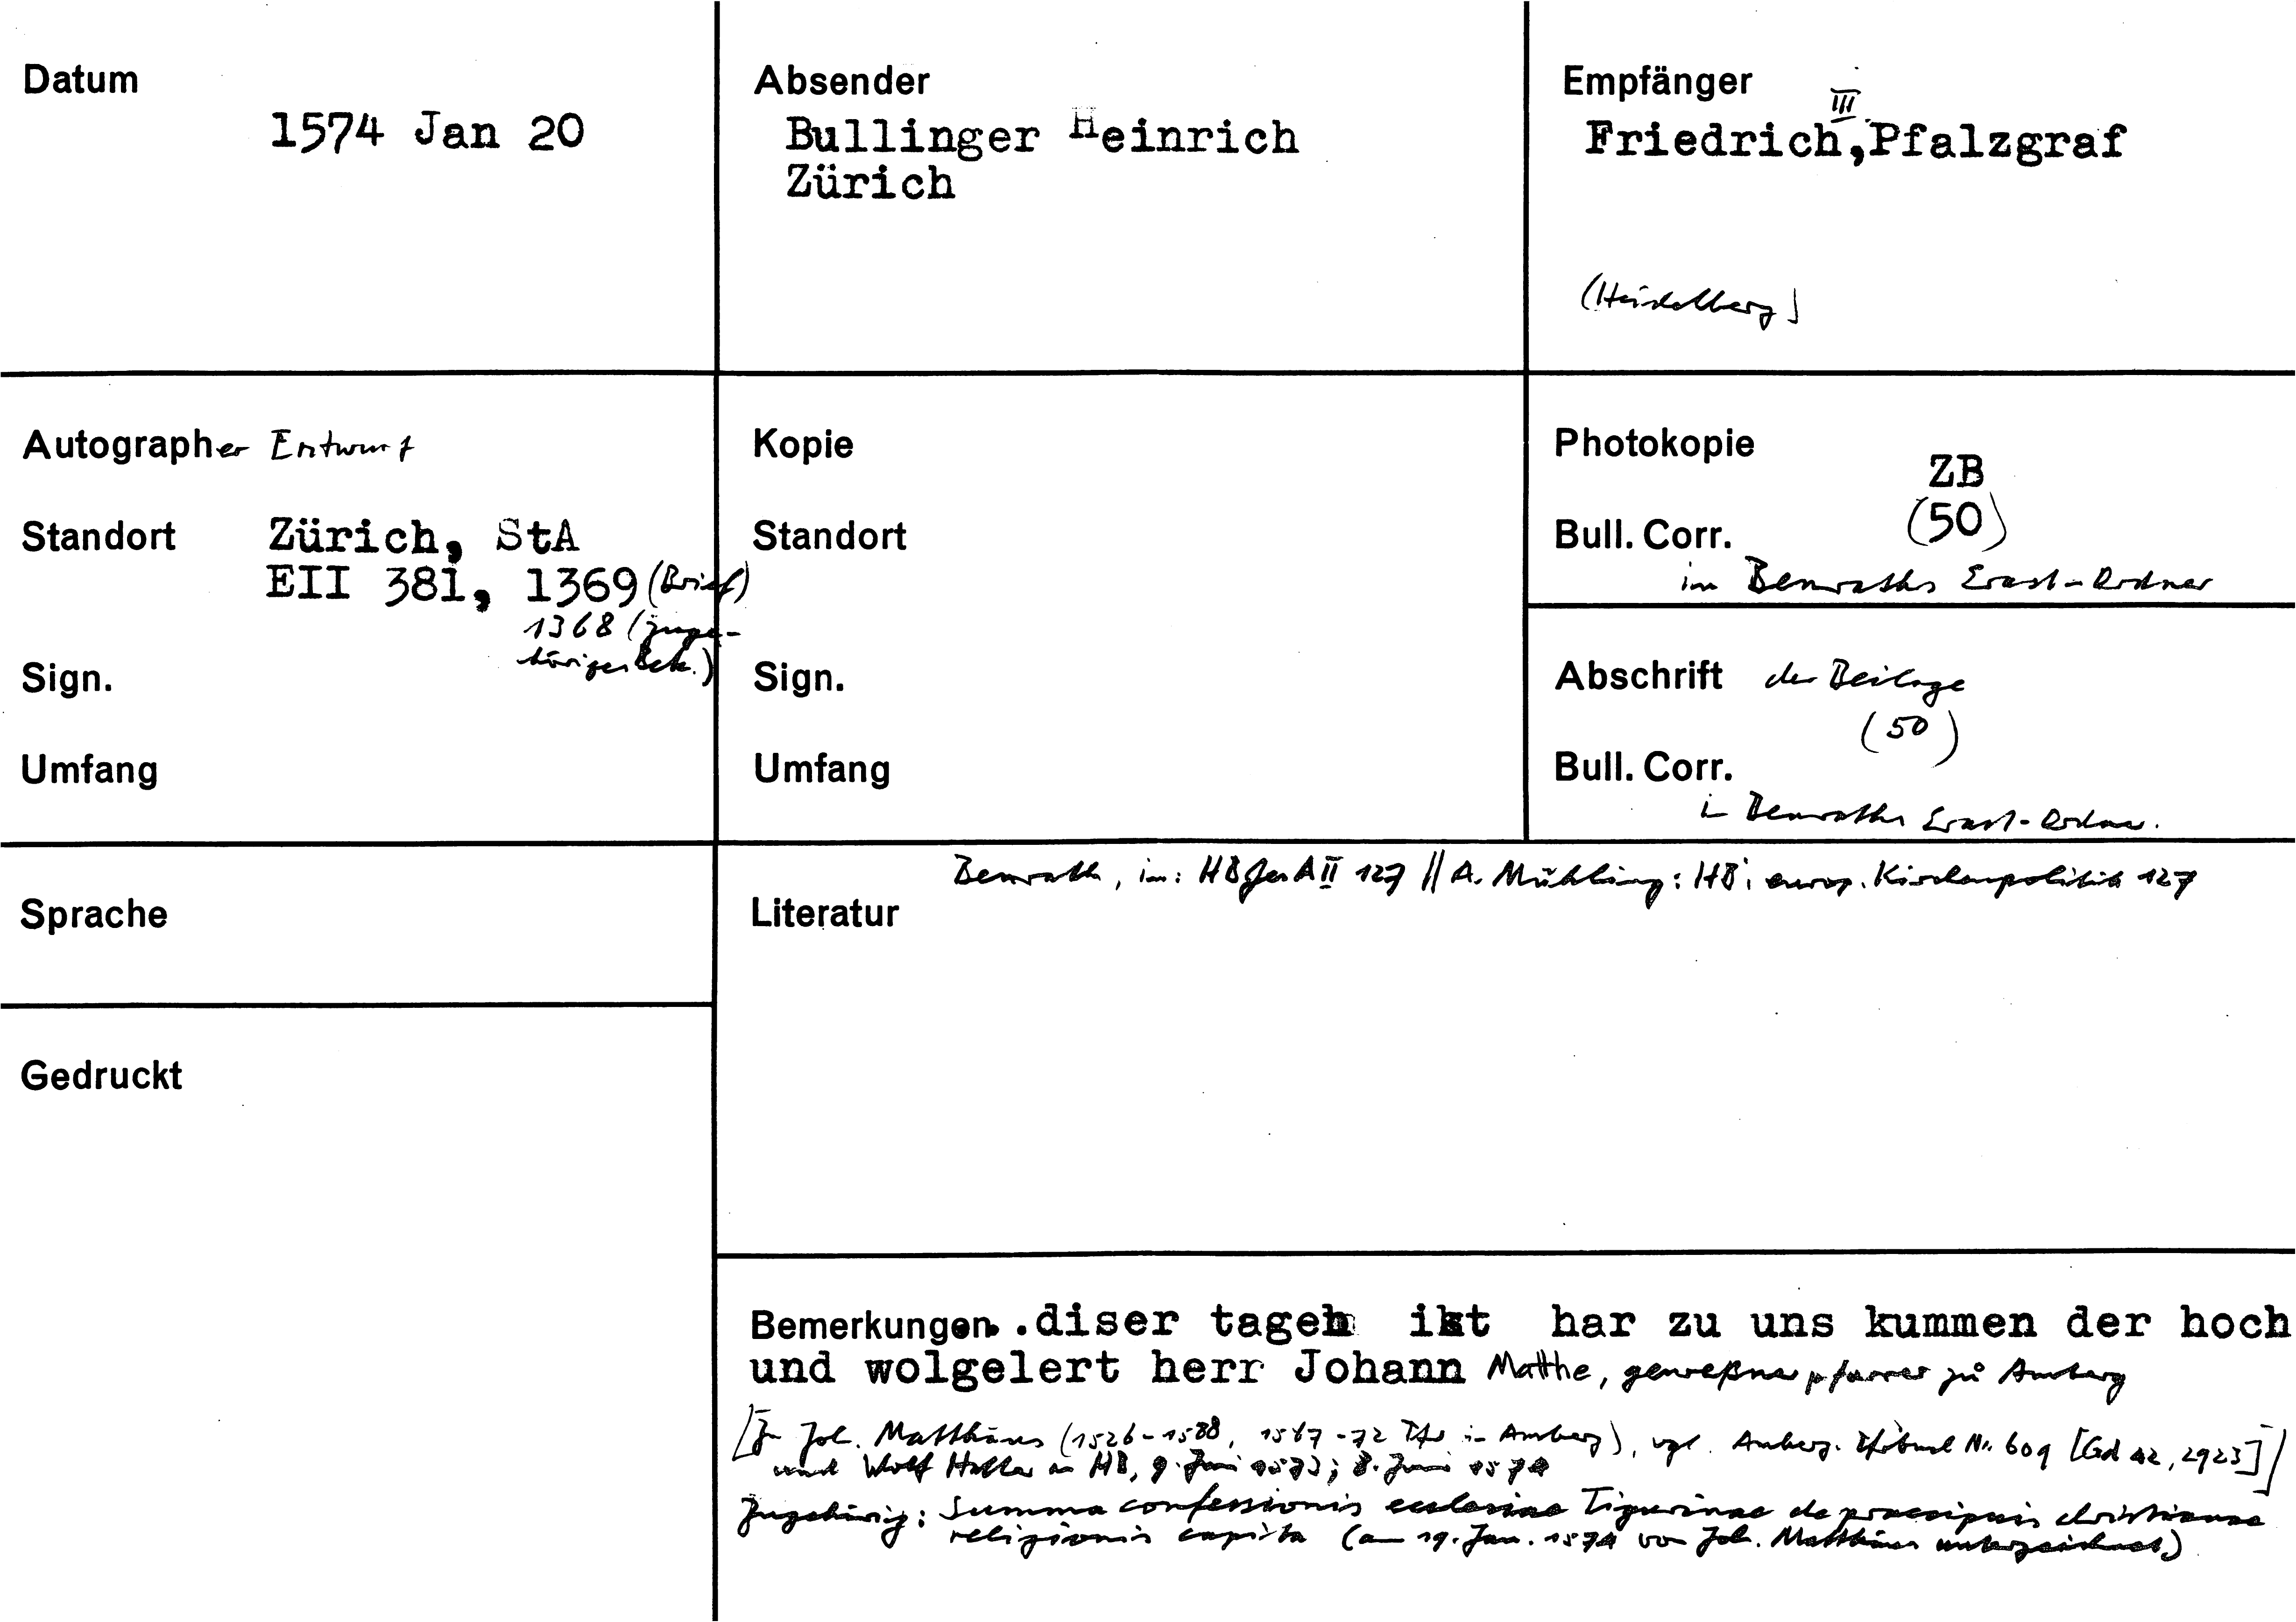 Datum
1574 Jan 20
Absender
Bullinger Heinrich
Zürich
Empfänger
III.
Friedrich, Pfalzgraf
(Heidelberg)
Autographer Entwurf
Standort Zürich, StA
EII 381, 1369 (Brief)
1368 (zuge-
höriges Bek.)
Sign.
Umfang
Kopie
Standort
Sign.
Umfang
Photokopie
ZB
Bull. Corr. (50)
im Benraths Erast-Ordner
Abschrift der Beilage
(50)
Bull. Corr.
in Benraths Erast-Ordner.
Sprache
Gedruckt
Benrath, in: HBGesA II 127 // A. Mühling: HB's europ. Kirchenpolitik 127
Literatur
Bemerkungen ..diser tagen ist har zu uns kummen der hoch
und wolgelert herr Johann Matthe, geweßner pfarrer zů Amberg
[Zu Joh. Matthäus (1526-1588, 1567-72 Pfr in Amberg), vgl. Amberg. Nr. 609 [Gd 42, 2923]
und Wolf Haller an HB, 9. Juni 1573; 8. Juni 1574]
Zugehörig: Summa confessionis ecclesiae Tigurinae de praecipuis christianae
religionis capita (am 19. Jan. 1574 von Joh. Matthäus unterzeichnet.)